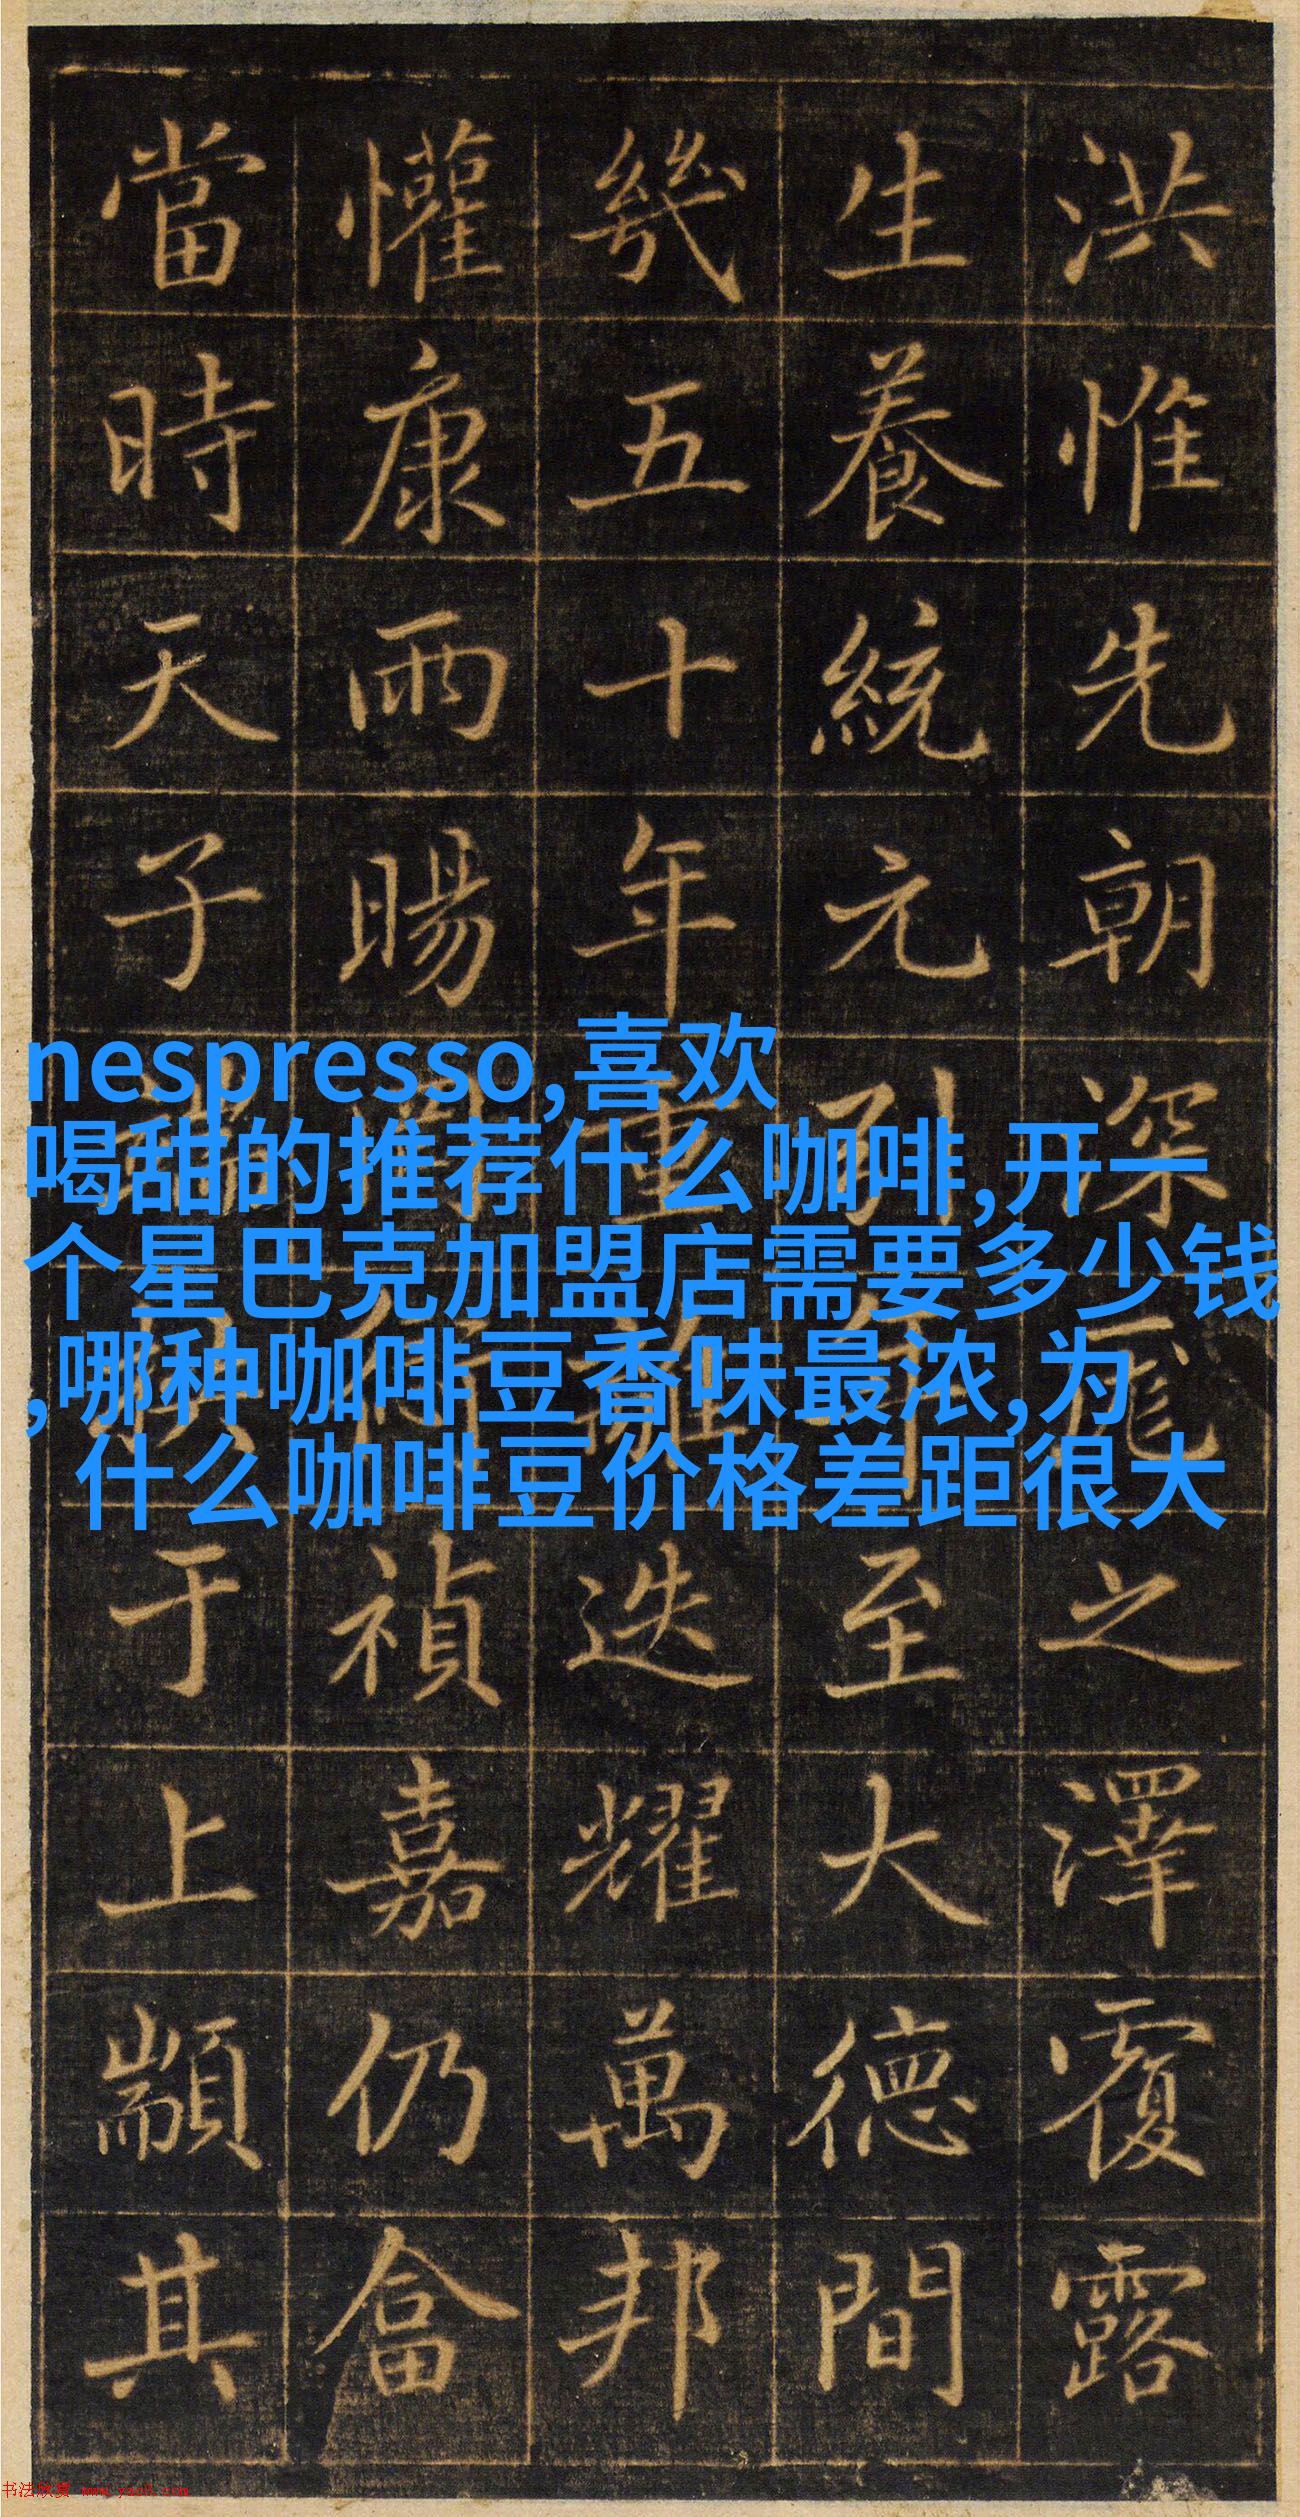 洪惟先朝深之澤覆露
生養統元至大德間
幾五十年重迭耀萬邦
懽康雨暘禎嘉仍畣
當時天子端拱于上顓其
nespresso,喜欢
喝甜的推荐什么咖啡,开一
个星巴克加盟店需要多少钱
,哪种咖啡豆香味最浓,为
什么咖啡豆价格差距很大
书法欣赏 www.yac8.com